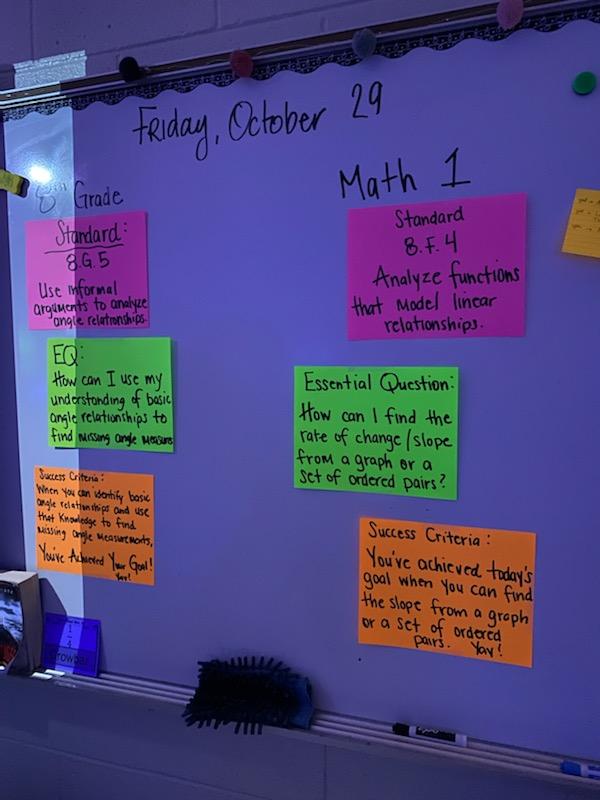 Friday, October 29
8th Grade
Standard:
8.G.5
Use informal
arguments to analyze
angle relationships.
EQ:
How can I use my
understanding of basic
angle relationships to
find missing angle measures
Success Criteria:
When you can identify basic
angle relationships and use
that knowledge to find
missing angle measurements,
You've Achieved Your Goal!
Yay!
Math 1
Standard
8.F.4
Analyze functions
that model linear
relationships.
Essential Question:
How can I find the
rate of change/slope
from a graph or a
set of ordered pairs?
Success Criteria:
You've achieved today's
goal when you can find
the slope from a graph
or a set of ordered
pairs. Yay!